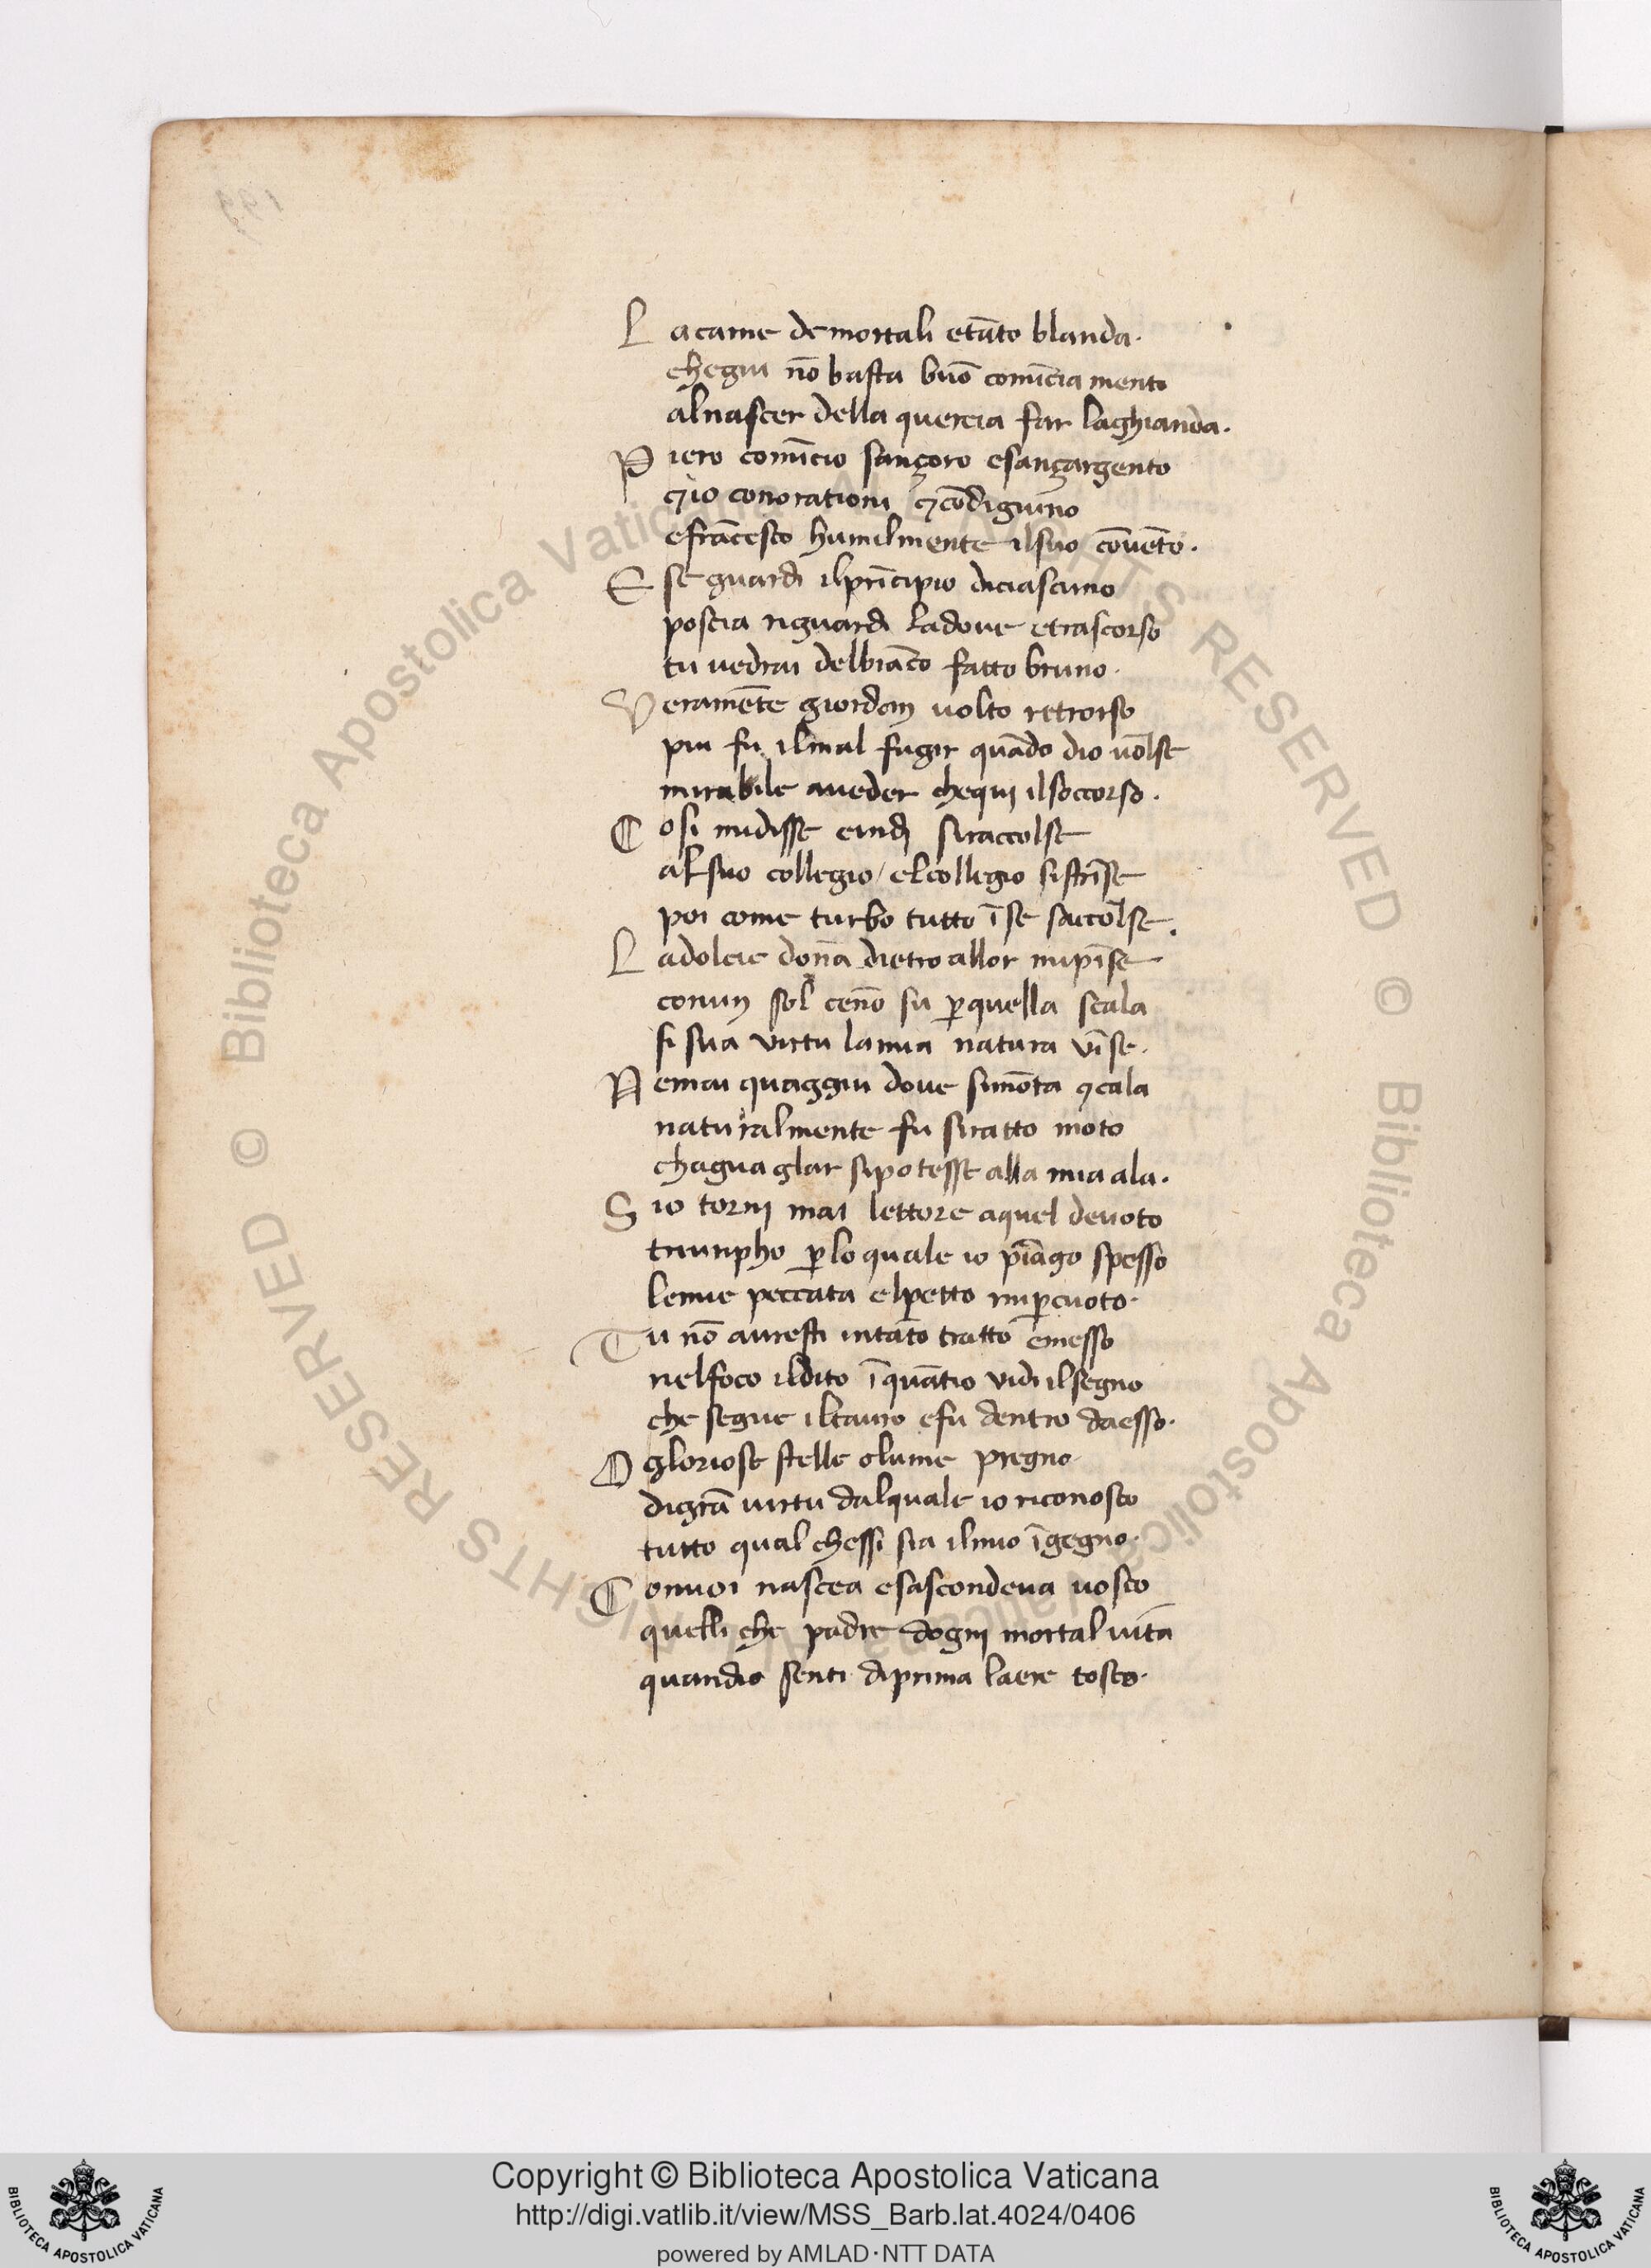 L acarne demortali etāto blanda.
chegiu nō basta buō comīciamento
alnascer della quercia far laghianda.
P iero comīcio sançoro esançargento
⁊io conorationi ⁊cōdigiuno
efrācesco humilmente ilsuo cōuēto.
E se guardi ilprīcipio diciascuno
poscia riguardi ladoue etrascorso
tu uedrai delbiāco fatto bruno.
V eramēte giordan uolto retrorso
piu fu ilmal fugir quādo dio uolse
mirabile aueder chequi ilsoccorso.
C osi midisse eindi siraccolse
alsuo collegio / elcollegio sistrīse
poi come turbo tutto ī se saccolse.
L adolcie dōna dietro allor mipīse
conun sol cēno su ꝑquella scala
si sua virtu lamia natura vīse.
N emai quaggiu doue simōta ⁊cala
naturalmente fu siratto moto
chaguaglar sipotesse alla mia ala.
S io torni mai lettore aquel deuoto
triunpho ꝑlo quale io piāgo spesso
lemie peccata elpetto miꝑcuoto.
T u nō auresti intāto tratto emesso
nelfoco ildito ī quātio vidi ilsegno
che segue iltauro efu dentro daesso.
O gloriose stelle olume pregno
digrā uirtu dalquale io riconosco
tutto qual chessi sia ilmio īgegno.
C onuoi nascea esascondeua uosco
quelli che padre dogni mortal uita
quandio senti diprima laere tosco.
Copyright © Biblioteca Apostolica Vaticana
http://digi.vatlib.it/view/MSS_Barb.lat.4024/0406
powered by AMLAD·NTT DATA
BIBLIOTECA APOSTOLICA VATICANA
BIBLIOTECA APOSTOLICA VATICANA
© Biblioteca Apostolica Vaticana ALL RIGHTS RESERVED © Biblioteca Apostolica Vaticana ALL RIGHTS RESERVED